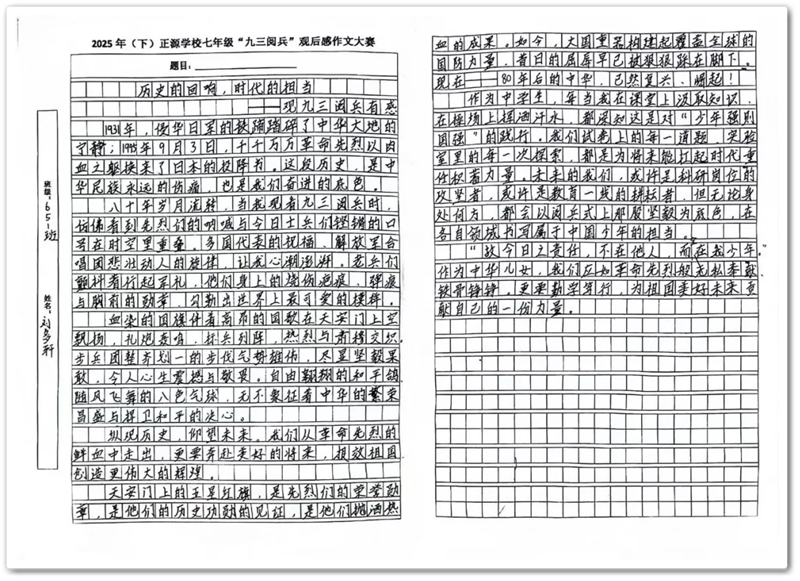 2025年（下）正源学校七年级“九三阅兵”观后感作文大赛
题目：
班级：651班
姓名：刘多轩
历史的回响，时代的担当
——观九三阅兵有感
1931年，侵华日军的铁蹄踏碎了中华大地的
宁静；1945年9月3日，千千万万革命先烈以肉
血之躯换来了日本的投降书。这段历史，是中
华民族永远的伤痛，也是我们奋进的底色。
八十年岁月流转，当我观看九三阅兵时，
仿佛看到先烈们的呐喊与今日士兵们铿锵的口
号在时空里重叠。多国代表的祝福、解放军合
唱团悲壮动人的旋律，让我心潮澎湃。老兵们
颤抖着行起军礼，他们身上的烧伤疤痕、弹痕
与胸前的勋章，勾勒出世界上最可爱的模样。
血染的国旗伴着高昂的国歌在天安门上空
飘扬，礼炮轰鸣，标兵列阵，热烈与肃穆交织。
步兵团整齐划一的步伐气势雄伟，尽显坚毅果
敢，令人心生震撼与敬畏。自由翱翔的和平鸽
随风飞舞的八色气球，无不象征着中华的繁荣
昌盛与捍卫和平的决心。
纵观历史，仰望未来。我们从革命先烈的
鲜血中走出，更要奔赴美好的将来，报效祖国
创造更伟大的辉煌。
天安门上的五星红旗，是先烈们的荣誉勋
章，是他们的历史功勋的见证，是他们抛洒热
血的成果。如今，大国重器构建起覆盖全球的
国防力量，昔日的屈辱早已被狠狠踩在脚下。
现在——80年后的中华，已然复兴、崛起！
作为中学生，每当我在课堂上汲取知识、
在操场上挥洒汗水，都深知这是对“少年强则
国强”的践行。我们试卷上的每一道题、实验
室里的每一次探索，都是为将来能扛起时代重
任积蓄力量。未来的我们，或许是科研岗位的
攻坚者，或许是教育一线的耕耘者，但无论身
处何方，都会以阅兵式上那股坚毅为底色，在
各自领域书写属于中国少年的担当。
“故今日之责任，不在他人，而在我少年。”
作为中华儿女，我们应如革命先烈般无私奉献
铁骨铮铮，更要勤学笃行，为祖国美好未来贡
献自己的一份力量。